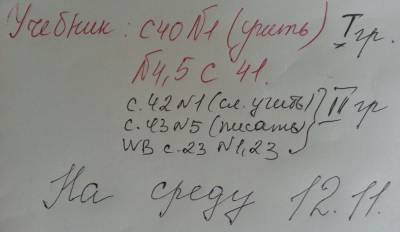 Учебник: с40 №1 (учить) I гр.
№4,5 с 41.
с.42 №1 (сл. учить) } II гр
с.43 №5 (писать)
WB с.23 №1,23
На среду 12.11.